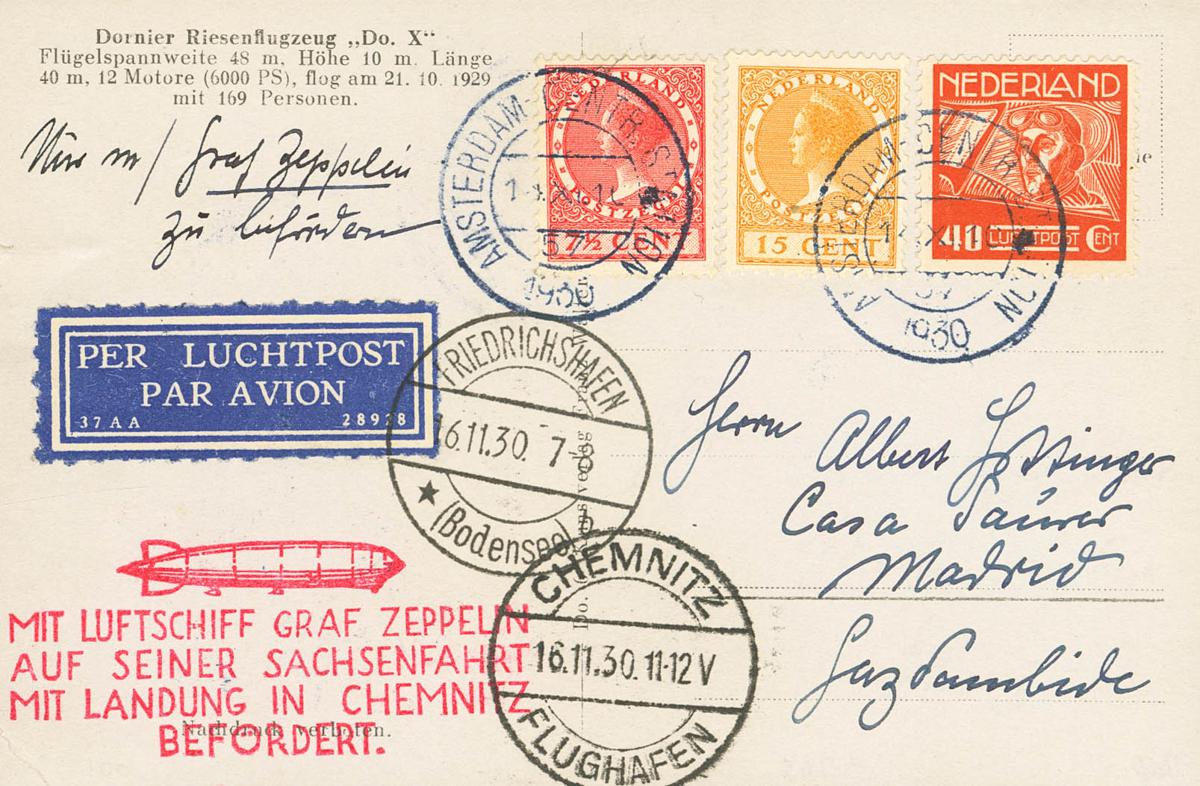 Dornier Riesenflugzeug „Do. X“
Flügelspannweite 48 m, Höhe 10 m. Länge
40 m, 12 Motore (6000 PS), flog am 21. 10. 1929
mit 169 Personen.
Nur m/ Graf Zeppelin
zu befördern
NEDERLAND
POSTZEGEL
7½ CENT
NEDERLAND
POSTZEGEL
15 CENT
NEDERLAND
40 LUCHTPOST CENT
AMSTERDAM-CENTR.STATION
57
1930
AMSTERDAM-CENTR. STATION
1930
PER LUCHTPOST
PAR AVION
37 AA 28928
FRIEDRICHSHAFEN
16.11.30. 7-8
(Bodensee) b
CHEMNITZ
16.11.30. 11-12 V
FLUGHAFEN
Herrn
Albert
Casa Saurer
Madrid
Gaztambide
MIT LUFTSCHIFF GRAF ZEPPELIN
AUF SEINER SACHSENFAHRT
MIT LANDUNG IN CHEMNITZ
BEFÖRDERT.
Nachdruck verboten.